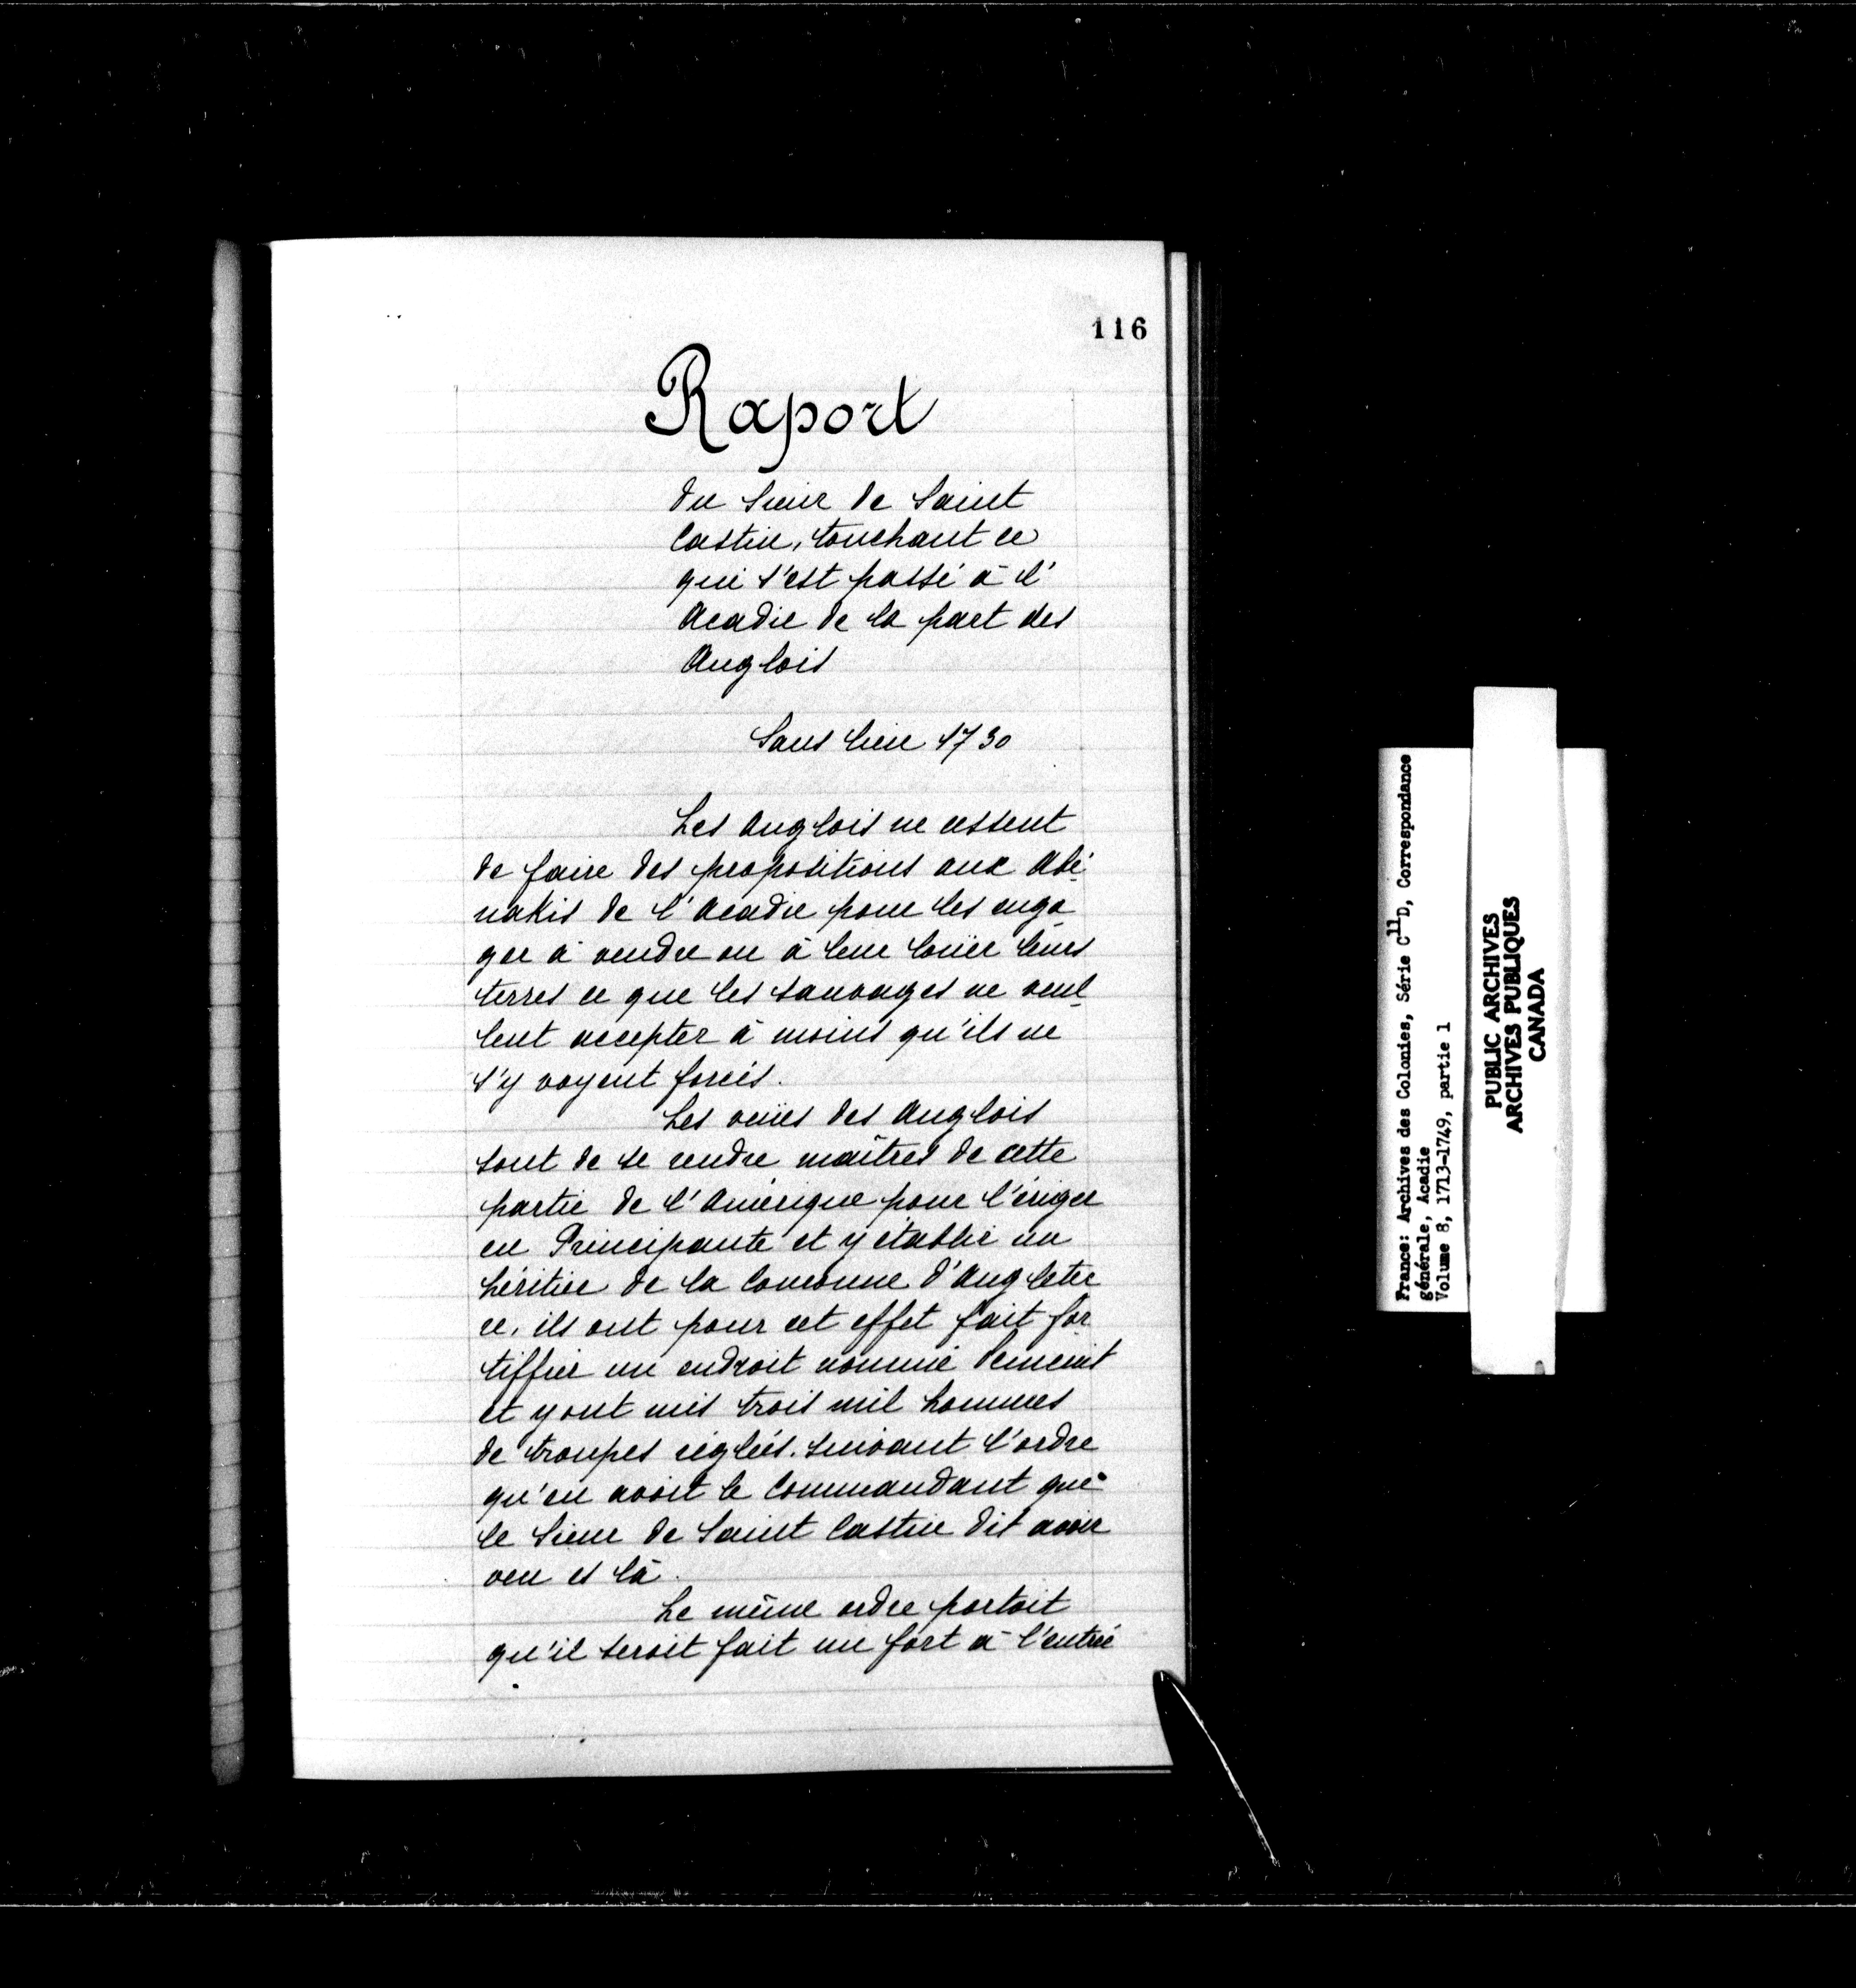 116
Raport
du Sieur de Saint
Castin, touchant ce
qui s'est passé à l'
Acadie de la part des
Anglois
Sans lieu 1730
Les Anglois ne cessent
de faire des propositions aux Abé
nakis de l'Acadie pour les enga
ger à vendre ou à leur loüer leurs
terres ce que les sauvages ne veul
lent accepter à moins qu'ils ne
s'y voyent forcés.
Les veües des Anglois
sont de se rendre maîtres de cette
partie de l'Amérique pour l'ériger
en Principauté et y établir un
héritier de la Couronne d'Angleter
re, ils ont pour cet effet fait for
tiffier un endroit nommé
et y ont mis trois mil hommes
de troupes réglées. suivant l'ordre
qu'en avoit le Commandant que
le Sieur de Saint Castin dit avoir
veu et là.
Le même ordre portoit
qu'il seroit fait un fort à l'entrée
France: Archives des Colonies, Série C11D, Correspondance
générale, Acadie
Volume 8, 1713-1749, partie 1
PUBLIC ARCHIVES
ARCHIVES PUBLIQUES
CANADA